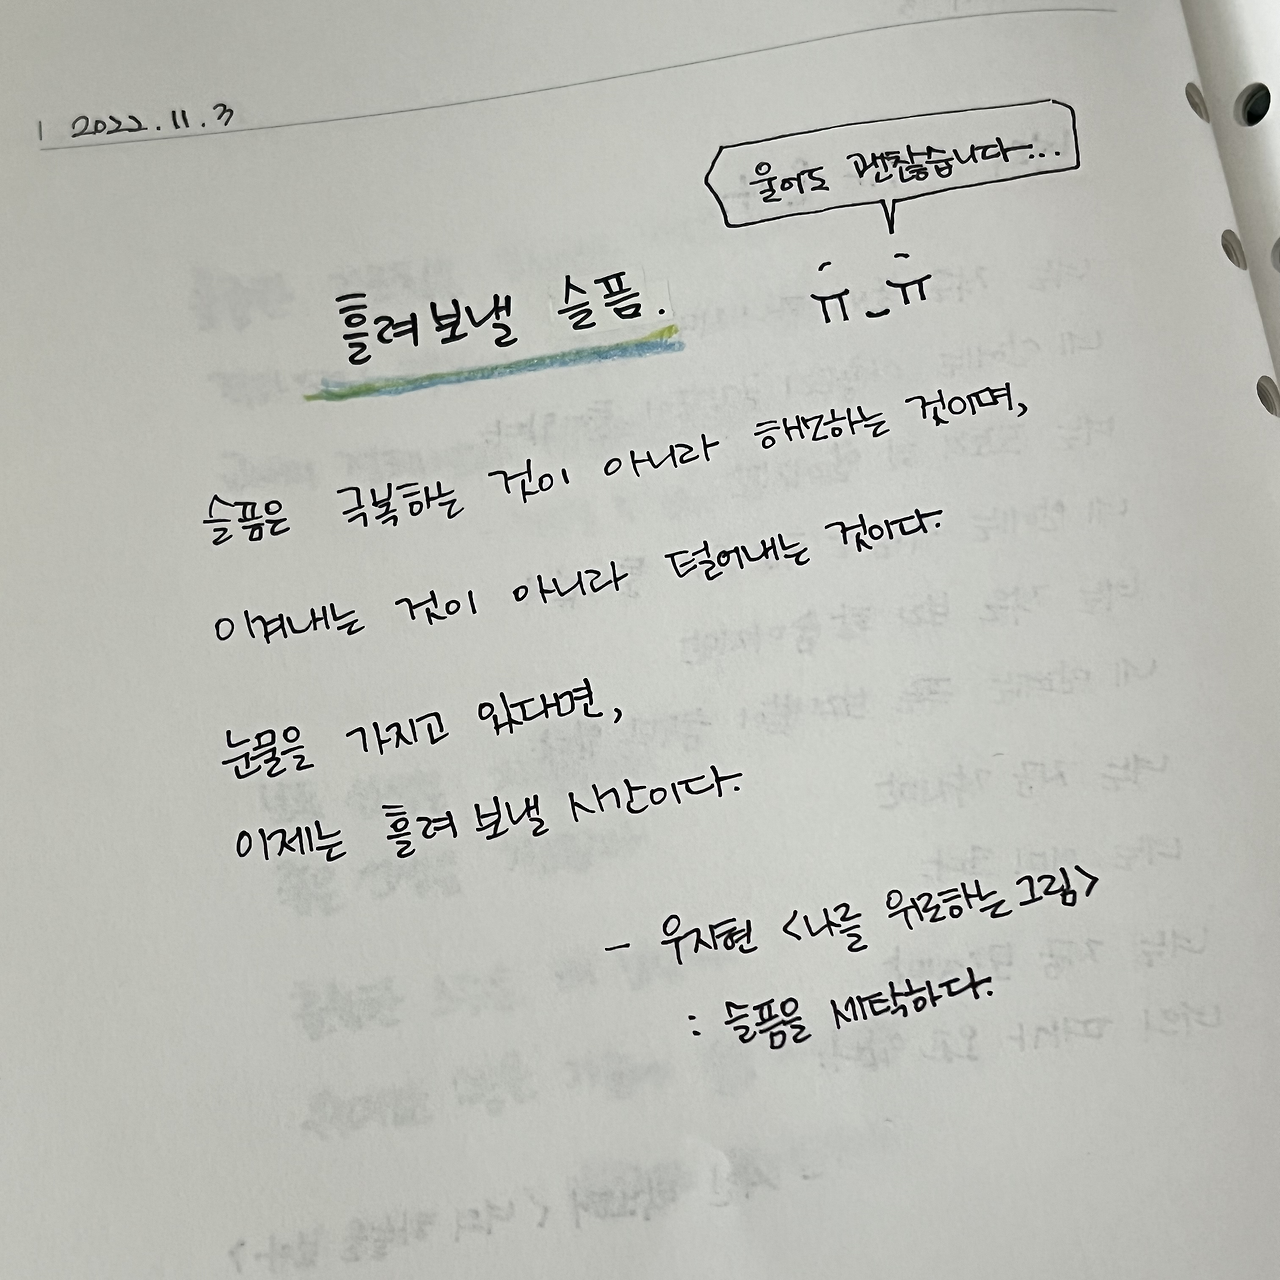 2022.11.3
울어도 괜찮습니다...
ㅠ_ㅠ
흘려보낼 슬픔.
슬픔은 극복하는 것이 아니라 해소하는 것이며,
이겨내는 것이 아니라 털어내는 것이다.
눈물을 가지고 있다면,
이제는 흘려 보낼 시간이다.
- 우지현 <나를 위로하는 그림>
: 슬픔을 세탁하다.